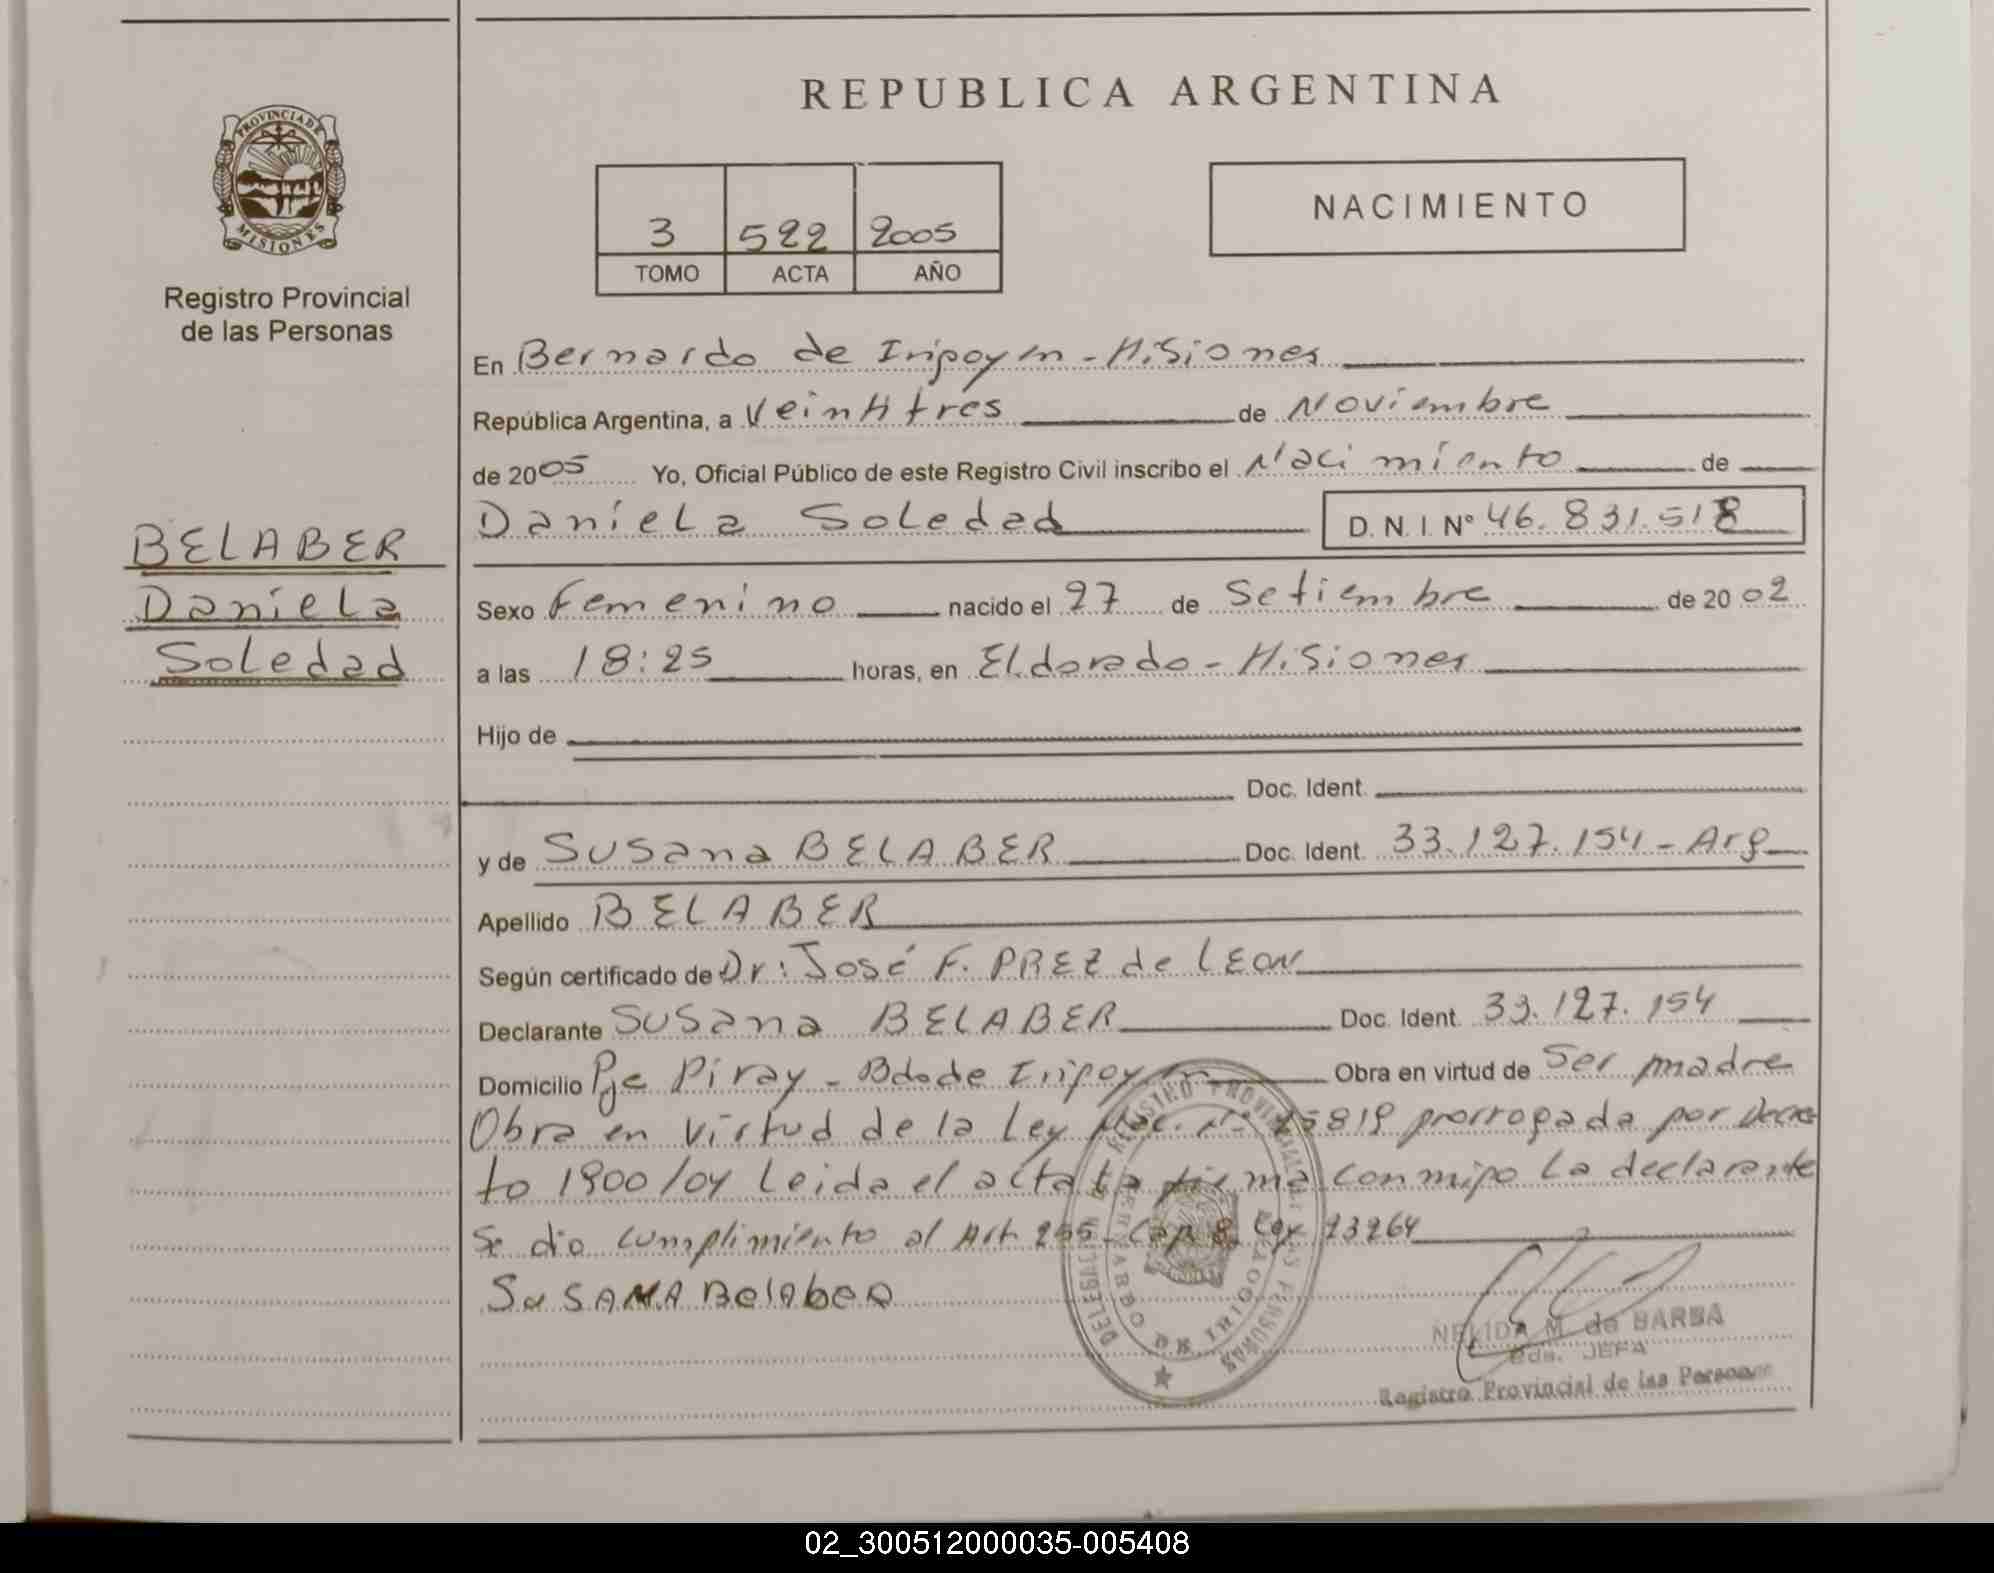 REPUBLICA ARGENTINA
PROVINCIA DE
MISIONES
Registro Provincial
de las Personas
3 522 2005
TOMO ACTA AÑO
NACIMIENTO
En Bernardo de Iripoyen - Misiones
República Argentina, a Veintitres de Noviembre
de 2005 Yo, Oficial Público de este Registro Civil inscribo el Nacimiento de
Daniela Soledad D. N. I. Nº 46.831.518
BELABER
Daniela
Soledad
Sexo Femenino nacido el 27 de Setiembre de 2002
a las 18:25 horas, en Eldorado - Misiones
Hijo de
Doc. Ident.
y de Susana BELABER Doc. Ident. 33.127.154 - Arg
Apellido BELABER
Según certificado de Dr: José F. PREZ de LEON
Declarante Susana BELABER Doc. Ident. 33.127.154
Domicilio Pje Piray - Bdo de Iripoyen Obra en virtud de Ser madre
Obra en virtud de la Ley Nac. Nº 25819 prorrogada por Decre
to 1900/04 Leida el acta la firma conmigo La declarante
Se dio cumplimiento al Art. 255 - Cap 8 Ley 23264
SuSANA BelabeR
DELEGACION REGISTRO PROVINCIAL DE LAS PERSONAS
BERNARDO DE IRIGOYEN
NELIDA M. de BARBA
Eda. JEFA
Registro Provincial de las Personas
02_300512000035-005408